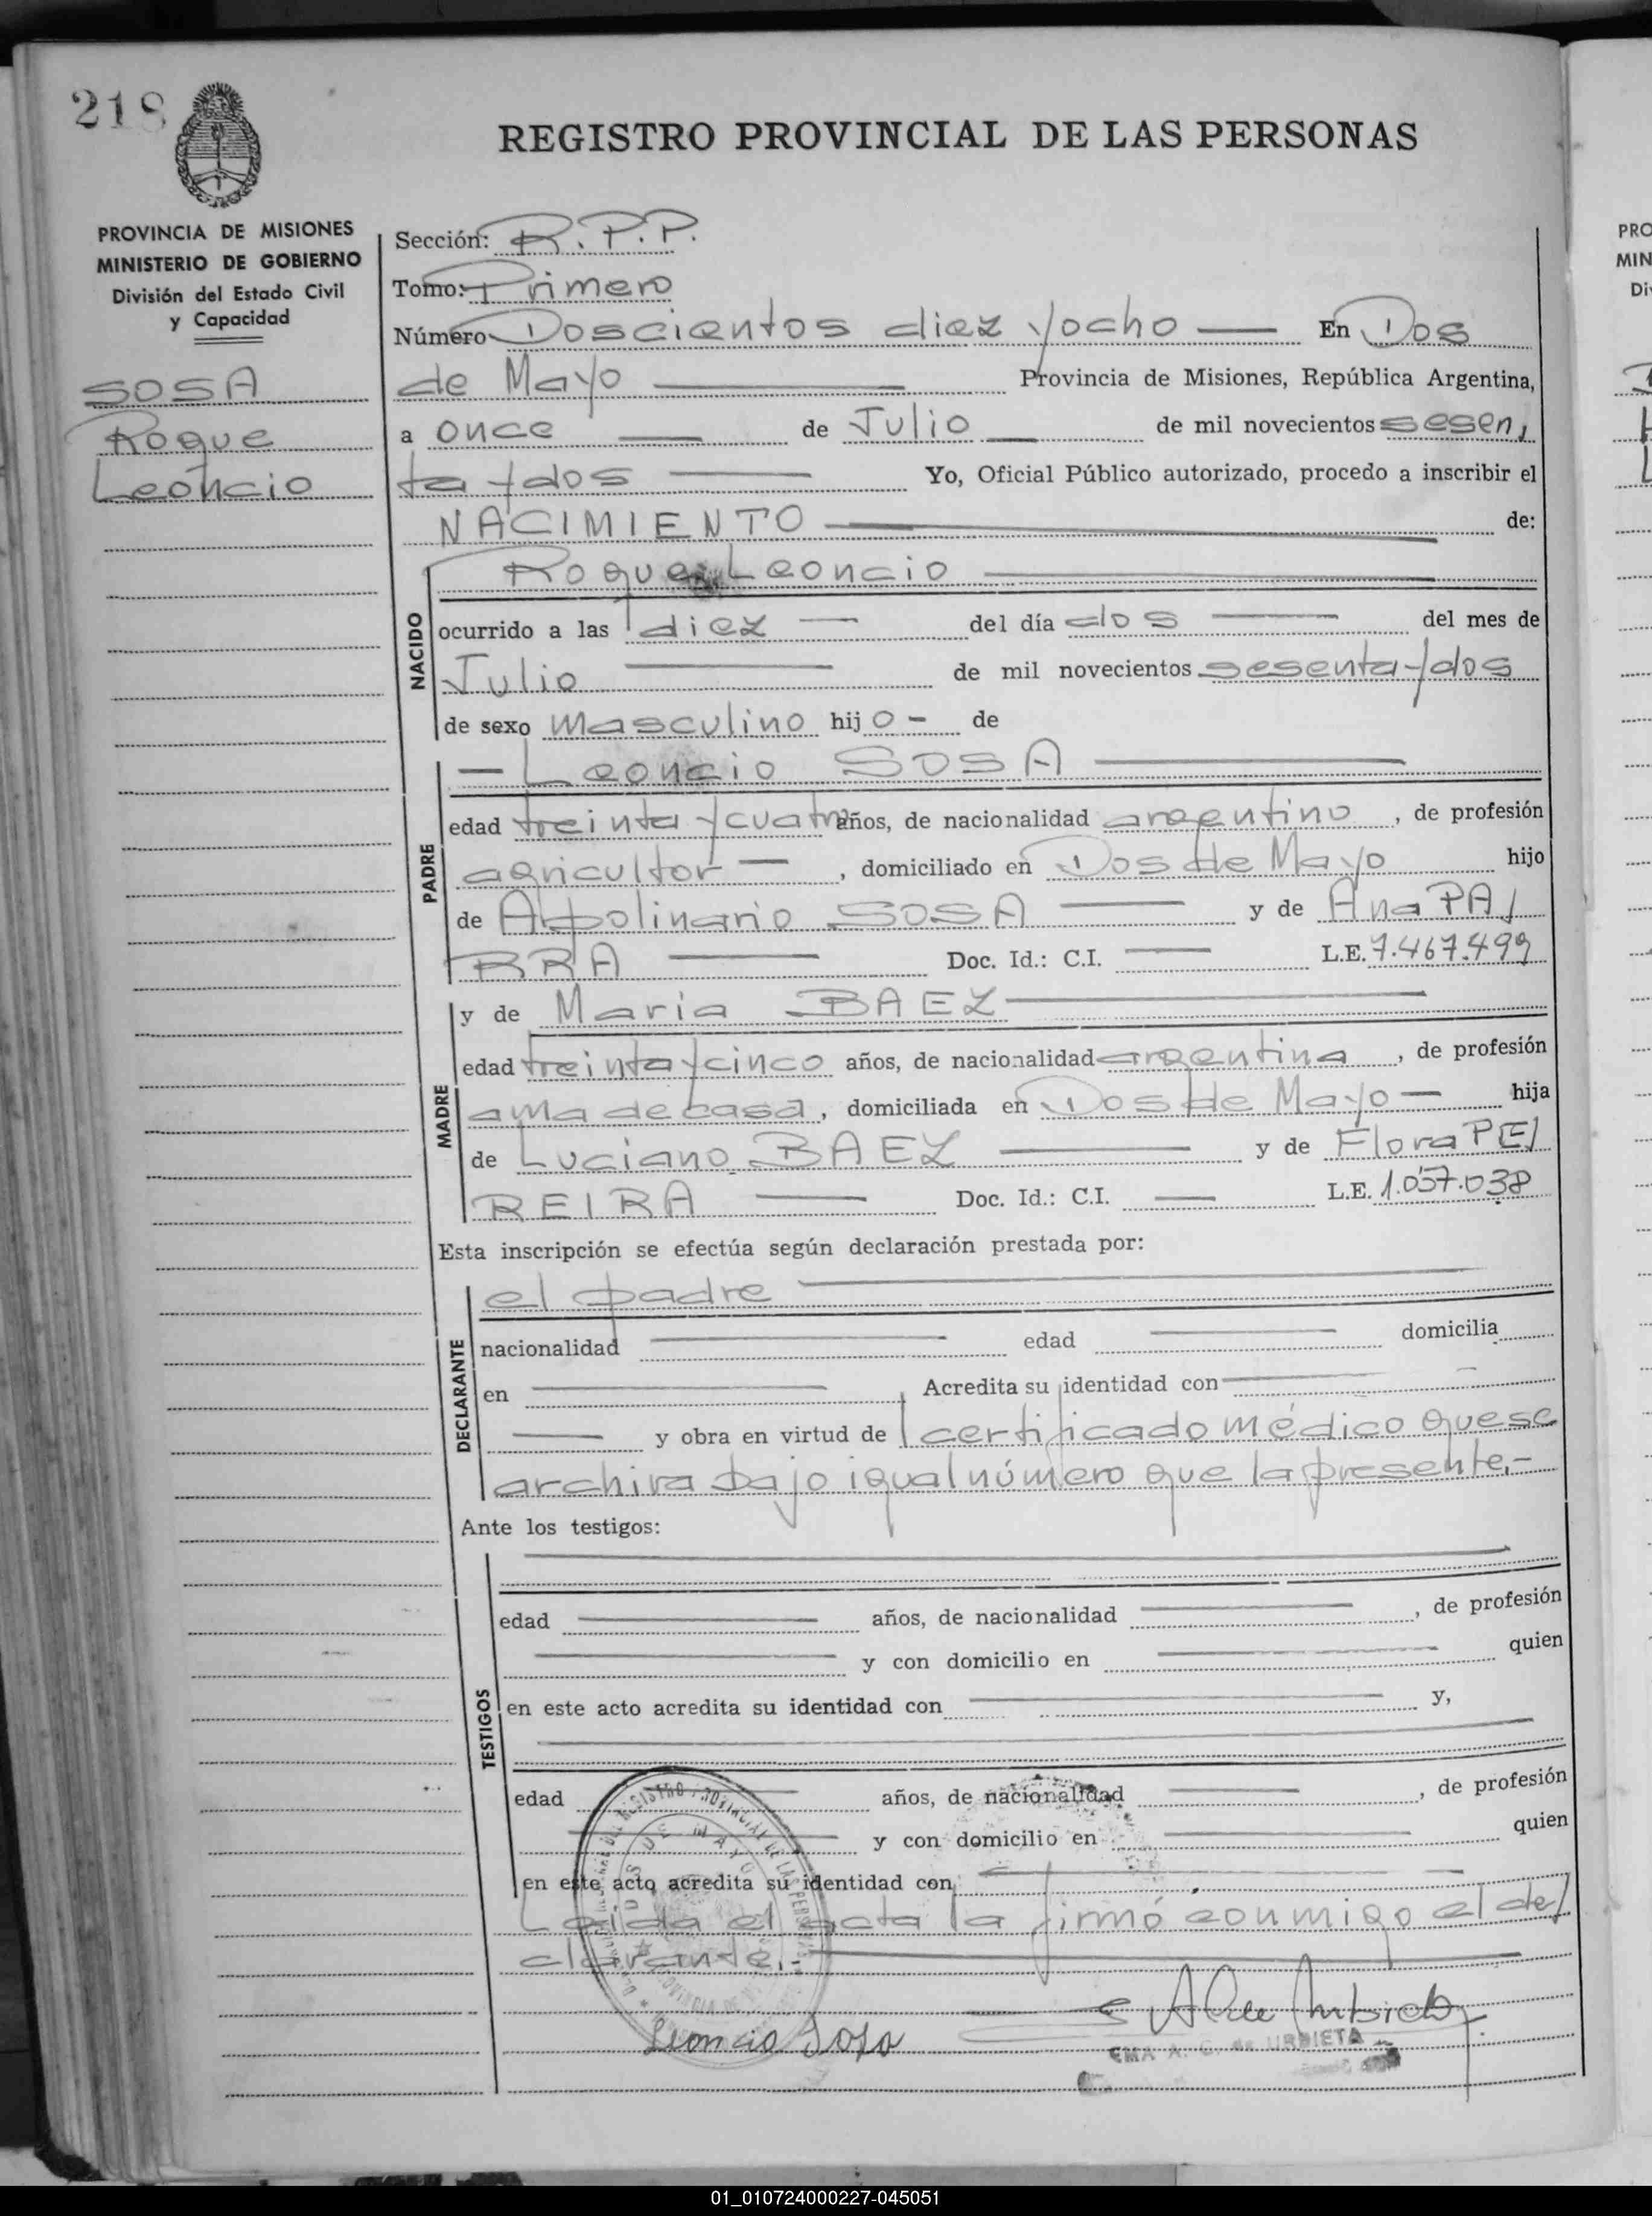 218
REGISTRO PROVINCIAL DE LAS PERSONAS
PROVINCIA DE MISIONES
MINISTERIO DE GOBIERNO
División del Estado Civil
y Capacidad
SOSA
Roque
Leoncio
Sección: R.P.P.
Tomo: Primero
Número Doscientos diez y ocho En Dos
de Mayo Provincia de Misiones, República Argentina,
a once de Julio de mil novecientos sesen/
ta y dos Yo, Oficial Público autorizado, procedo a inscribir el
NACIMIENTO de:
Roque Leoncio
NACIDO
ocurrido a las diez del día dos del mes de
Julio de mil novecientos sesenta y dos
de sexo masculino hijo- de
Leoncio SOSA
PADRE
edad treinta y cuatro años, de nacionalidad argentino, de profesión
agricultor, domiciliado en Dos de Mayo hijo
de Apolinario SOSA y de Ana PA/
RRA Doc. Id.: C.I. L.E. 7.467.499
MADRE
y de Maria BAEZ
edad treinta y cinco años, de nacionalidad argentina, de profesión
ama de casa, domiciliada en Dos de Mayo hija
de Luciano BAEZ y de Flora PE/
REIRA Doc. Id.: C.I. L.E. 1.057.038
Esta inscripción se efectúa según declaración prestada por:
DECLARANTE
el padre
nacionalidad edad domicilia
en Acredita su identidad con
y obra en virtud de certificado médico que se
archiva bajo igual número que la presente.-
Ante los testigos:
TESTIGOS
edad años, de nacionalidad, de profesión
y con domicilio en quien
en este acto acredita su identidad con y,
edad años, de nacionalidad, de profesión
y con domicilio en quien
en este acto acredita su identidad con
Leída el acta la firmó conmigo el de/
clarante.-
Leoncio Sosa
EMA A. C. de URBIETA
PRO
MIN
01_010724000227-045051